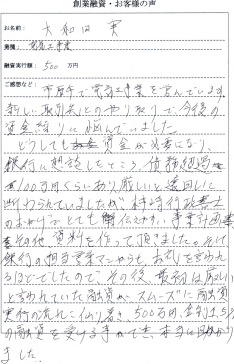 創業融資・お客様の声
お名前: 大和田 実
業種: 電気工事業
融資実行額: 500 万円
ご感想など:
市原市で電気工事業を営んでいます。
新しい取引先とのやり取りで、今後の
資金繰りに悩んでいました。
どうしても資金が必要になり、
銀行に相談したところ、債務超過
が100万円くらいあり厳しいと遠回しに
断わられていましたが 村井行政書士
のおかげで とても 事業計画書
をその他、資料を作って頂きました。それで
銀行の担当営業マンからも、お礼を言われ
るほどでしたので、その後、最初は厳しい
と言われていた融資が、スムーズに融資
実行の流れになり 500万円、金利1.5%
の融資を受ける事ができ、本当に助かり
ました